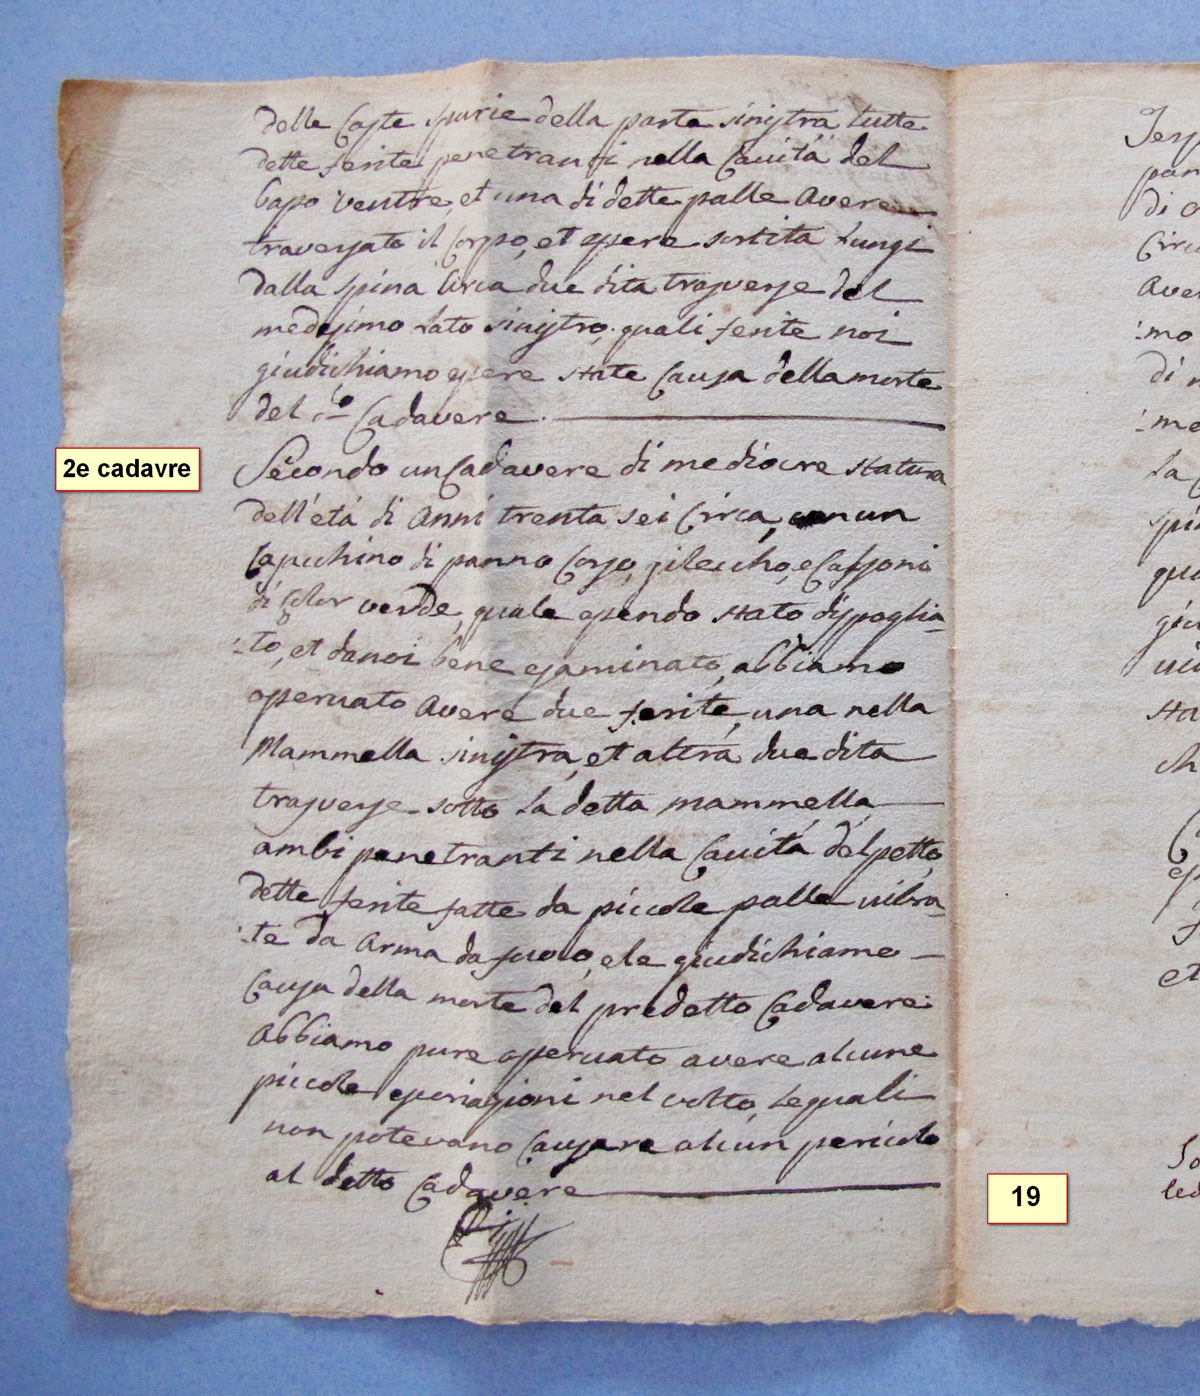 delle Coste spurie della parte sinistra tutte
dette ferite penetranti nella Cavitá del
bapo ventre, et una di dette palle Avere
traversato il Corpo, et essere sortita lungi
dalla spina Circa due dita trasverse del
medesimo lato sinistro, quali ferite noi
giudichiamo essere state Causa della morte
del do Cadavere.
2e cadavre
Secondo un Cadavere di mediocre statura
dell'etá di Anni trenta sei Circa, con un
Capuchino di panno Corso, gilecho, e Cassoni
di Color verde, quale essendo stato dispoglia-
:to, et da noi bene esaminato, abbiamo
osservato Avere due ferite, una nella
Mammella sinistra, et altra due dita
trasverse sotto la detta mammella
ambi penetranti nella Cavitá del petto,
dette ferite fatte da piccole palle vibra-
:te da Arma da fuoco, e le giudichiamo
Causa della morte del predetto Cadavere.
Abbiamo pure osservato avere alcune
piccole escoriazioni nel volto, le quali
non potevano Causare alcun pericolo
al detto Cadavere
19
pan
di
Circ
Aver
:mo
di
:me
la
spi
que
giu
sta
ch
et
So
led